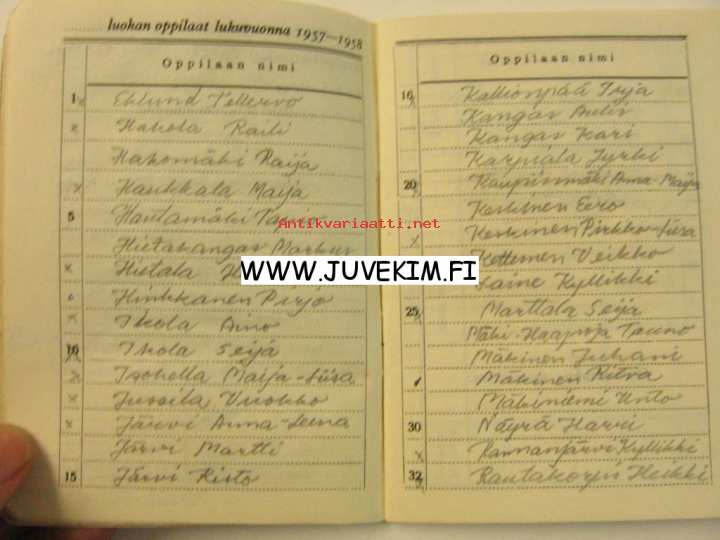 luokan oppilaat lukuvuonna 1957—1958
Oppilaan nimi
1 Eklund Tellervo
Hakola Raili
Hakomäki Raija
Haukkala Maija
5 Hautamäki
Hietakangas Markus
Hietala
Hinkkanen Pirjo
Ikola Aino
10 Ikola Seija
Isohella Maija-Liisa
Jussila Vuokko
Järvi Anna-Leena
Järvi Martti
15 Järvi Risto
Oppilaan nimi
16 Kallionpää Irja
Kangas Antti
Kangas Kari
Karpiala Jyrki
20 Kaupinmäki Anna-Maija
Keskinen Eero
Keskinen Pirkko-Liisa
Veikko
Laine Kyllikki
25 Marttala Seija
Mäki-Haapoja Tauno
Mäkinen Juhani
Mäkinen Ritva
Mäkiniemi Unto
30 Näyrä Harri
Rannanjärvi Kyllikki
32 Rautakorpi Heikki
Antikvariaatti.net
WWW.JUVEKIM.FI